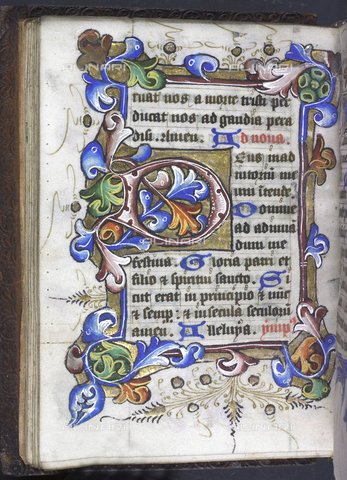 ruat nos a morte tristi per
ducat nos ad gaudia para
disi. Amen. Ad nona.
Deus in ad
iutorium me
um intende.
Domine
ad adiuua
dum me
festina. Gloria patri et
filio et spiritui sancto. Si
cut erat in principio et nuc
et semp. et in secula seculorum
amen. Alleluya.
ALINARI